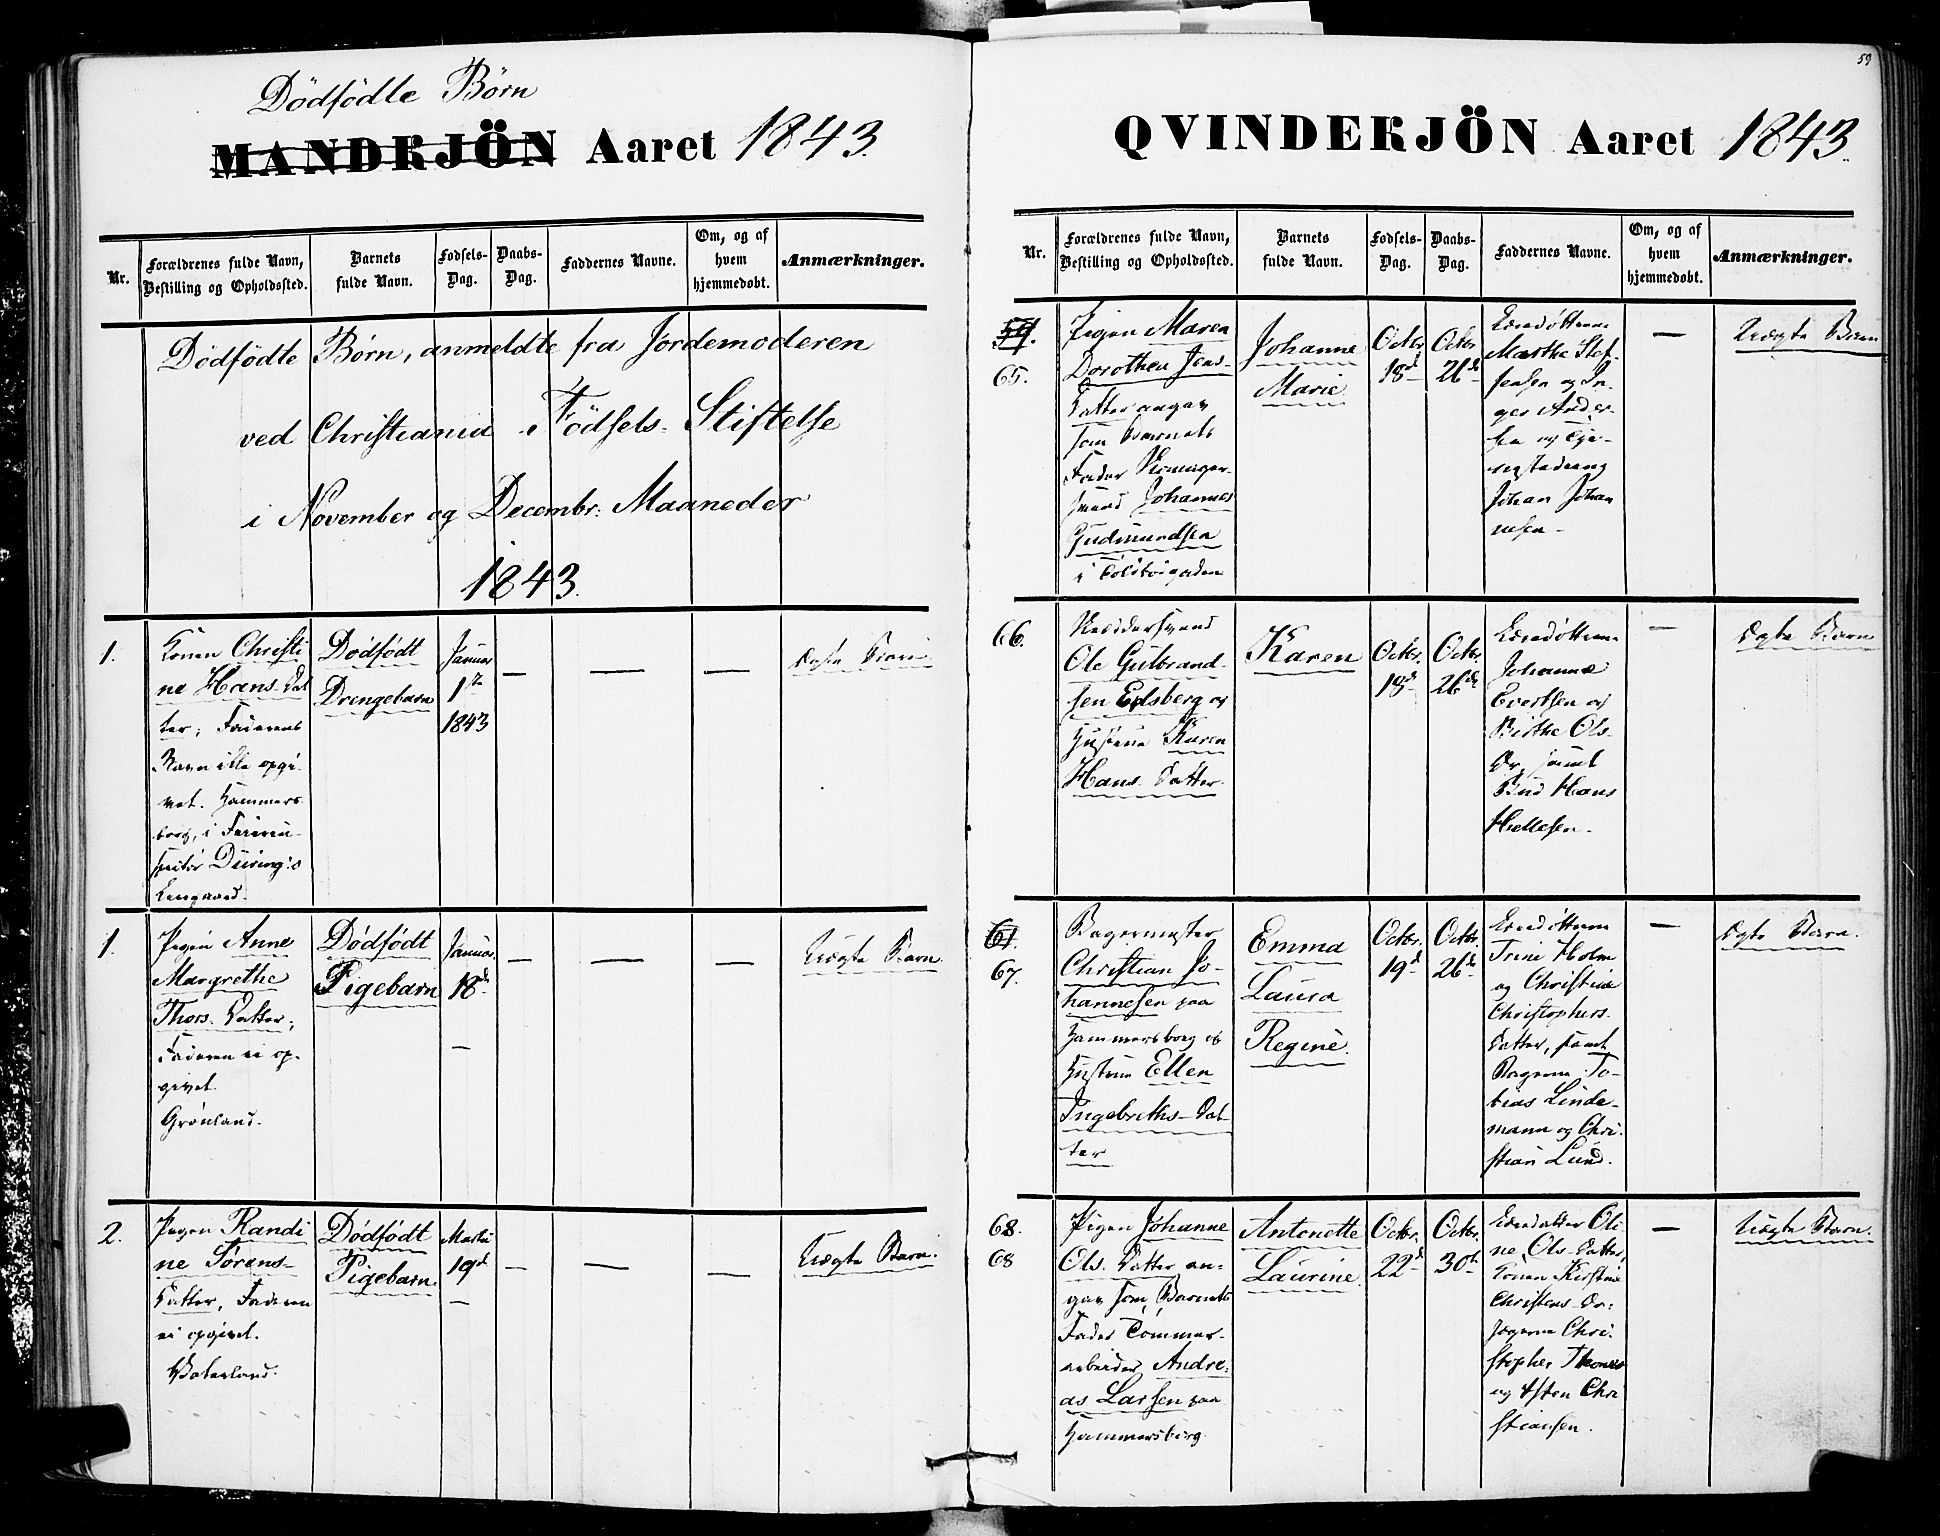 Dödfödte Börn
MANDKJÖN Aaret 1843.
Nr.
Forældrenes fulde Navn,
Bestilling og Opholdssted.
Barnets
fulde Navn.
Fødsels-
Dag.
Daabs-
Dag.
Faddernes Navne.
Om, og af
hvem
hjemmedøbt.
Anmærkninger.
Dödfödte Börn, anmeldte fra Jordemoderen
ved Christiania Födsels-Stiftelse
i November og Decembr: Maaneder
1843.
1.
Konen Christi
ne Hans Dat
ter; Faderens
Navn ikke opgi-
vet. Hammers
borg, i
Düring's
Dödfödt
Drengebarn
Januar
1ste
1843
—
—
—
Ægte Barn.
1.
Pigen Anne
Margrethe
Thors-Datter;
Faderen ei op-
givet.
Grönland.
Dödfödt
Pigebarn
Januar
18de
—
—
—
—
Uægte Barn.
2.
Pigen Randi
ne Sörens-
Datter, Faderen
ei opgivet.
Vaterland.
Dödfödt
Pigebarn.
Marts
19d
—
—
—
—
Uægte Barn.
59
QVINDEKJÖN Aaret 1843.
Nr.
Forældrenes fulde Navn,
Bestilling og Opholdssted.
Barnets
fulde Navn.
Fødsels-
Dag.
Daabs-
Dag.
Faddernes Navne.
Om, og af
hvem
hjemmedøbt.
Anmærkninger.
59.
65.
Pigen Maren
Dorothea Jens-
Datter angav
som Barnets
Fader
Johannes
Gudmundsen
i Toldbodgaden
Johanne
Marie
Octbr.
18d
Octbr.
26d
Marthe Stef-
fensen og In-
ger Ander-
sen og Tje-
Johan Johan
nesen-
—
Uægte Barn
66.
Ole Gulbrand-
sen Edsberg og
Hustrue Karen
Hans-Datter.
Karen
Octbr.
19d
Octbr.
26de
Johanne
Evertsen og
Birthe Ols-
Dr, samt
Bud Hans
Hellesen.
—
Ægte Barn
61.
67.
Bagermester
Christian Jo-
hannesen paa
Hammersborg og
Hustrue Ellen
Ingebreths-Dat
ter
Emma
Laura
Regine.
Octbr.
19d
Octbr.
26d
Trine Holm
og Christine
Christophers-
Datter, samt
Bagerne To-
bias Linde-
mann og Chri-
stian Lund.
—
Ægte Barn.
68.
68
Pigen Johanne
Ols-Datter an-
gav som Barnets
Fader Tömmer-
arbeider Andre-
as Larsen paa
Hammersborg.
Antonette
Laurine.
Octbr.
22d
Octbr.
30te
Oli
ne Ols-Datter,
Konen Kirstine
Christens-Dr:
Chri-
stopher Thomes
og Chri
stiansen.
—
Uægte Barn.